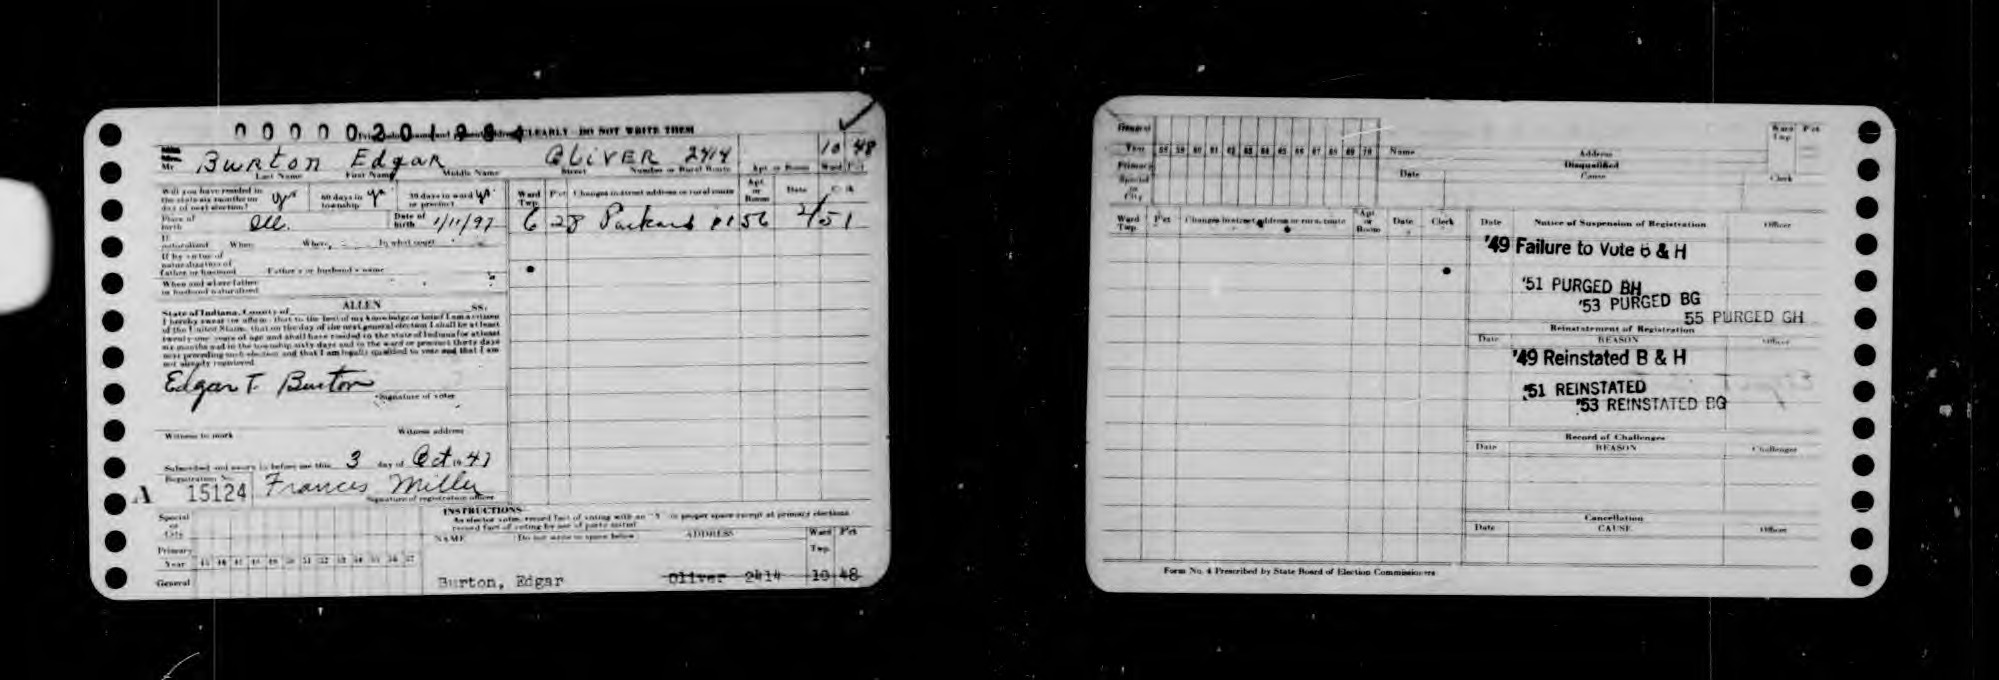 CLEARLY DO NOT WRITE THEM
Mr Burton Edgar Oliver 2414 10 48
Last Name First Name Middle Name Street Number or Rural Route Apt. or Room Ward Pct
Will you have resided in the state six months on day of next election? yes 60 days in township yes 30 days in ward or precinct yes
Ward Twp. Pct Changes in street address or rural route Apt. or Room Date Clerk
Place of birth Ill. Date of birth 1/11/97
6 28 Packard 1156 2/51
If naturalized When Where In what court
If by virtue of naturalization of father or husband Father's or husband's name
When and where father or husband naturalized
State of Indiana, County of ALLEN SS:
I hereby swear or affirm that to the best of my knowledge or belief I am a citizen
of the United States, that on the day of the next general election I shall be at least
twenty-one years of age and shall have resided in the state of Indiana for at least
six months and in the township sixty days and in the ward or precinct thirty days
next preceding such election and that I am legally qualified to vote and that I am
not already registered
Edgar T. Burton
Signature of voter
Witness to mark Witness address
Subscribed and sworn to before me this 3 day of Oct 1947
A Registration No. 15124 Frances Miller
Signature of registration officer
INSTRUCTIONS
As elector votes, record fact of voting with an "X" in proper space except at primary elections
record fact of voting by use of party initial
Special or City
Primary
Year 45 46 47 48 49 50 51 52 53 54 55 56 57
General
NAME Do not write in space below ADDRESS Ward Twp. Pct
Burton, Edgar Oliver 2414 10 48
General
Year
Primary
Special or City
Name Address Ward Twp. Pct
Disqualified
Date Cause Clerk
Ward Twp. Pct Changes in street address or rural route Apt or Room Date Clerk
Date Notice of Suspension of Registration Officer
'49 Failure to Vote B & H
'51 PURGED BH
'53 PURGED BG
55 PURGED GH
Reinstatement of Registration
Date REASON Officer
'49 Reinstated B & H
'51 REINSTATED
'53 REINSTATED BG
Record of Challenges
Date REASON Challenger
Cancellation
Date CAUSE Officer
Form No. 4 Prescribed by State Board of Election Commissioners